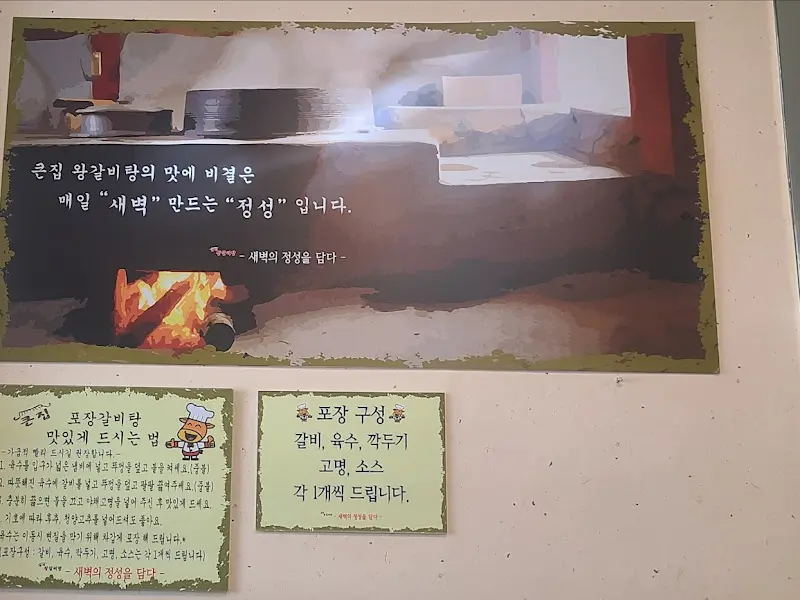 큰집 왕갈비탕의 맛에 비결은
매일 “새벽” 만드는 “정성” 입니다.
- 새벽의 정성을 담다 -
큰집
포장갈비탕
맛있게 드시는 법
-가급적 빨리 드시길 권장합니다.-
1. 육수를 입구가 넓은 냄비에 넣고 뚜껑을 덮고 불을 켜세요.(중불)
2. 따뜻해진 육수에 갈비를 넣고 뚜껑을 덮고 팔팔 끓여주세요.(중불)
충분히 끓으면 불을 끄고 야채고명을 넣어 주신 후 맛있게 드세요.
기호에 따라 후추, 청양고추를 넣어드셔도 좋아요.
육수는 이동시 변질을 막기 위해 차갑게 포장 해 드립니다.*
(포장구성 : 갈비, 육수, 깍두기, 고명, 소스는 각 1개씩 드립니다)
- 새벽의 정성을 담다 -
포장 구성
갈비, 육수, 깍두기
고명, 소스
각 1개씩 드립니다.
- 새벽의 정성을 담다 -